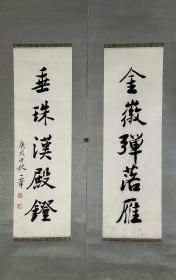 金徽彈落雁
垂珠漢殿鐙
庚戌中秋 一葦